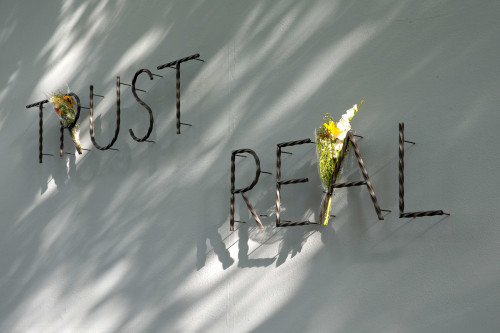 TRUST
REAL